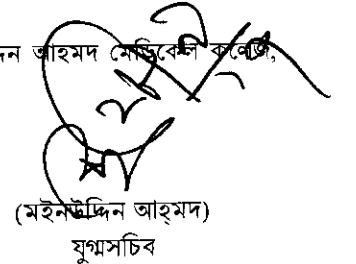 আহমদ মেডিকেল কলেজ,
(মইনউদ্দিন আহ্‌মদ)
যুগ্মসচিব